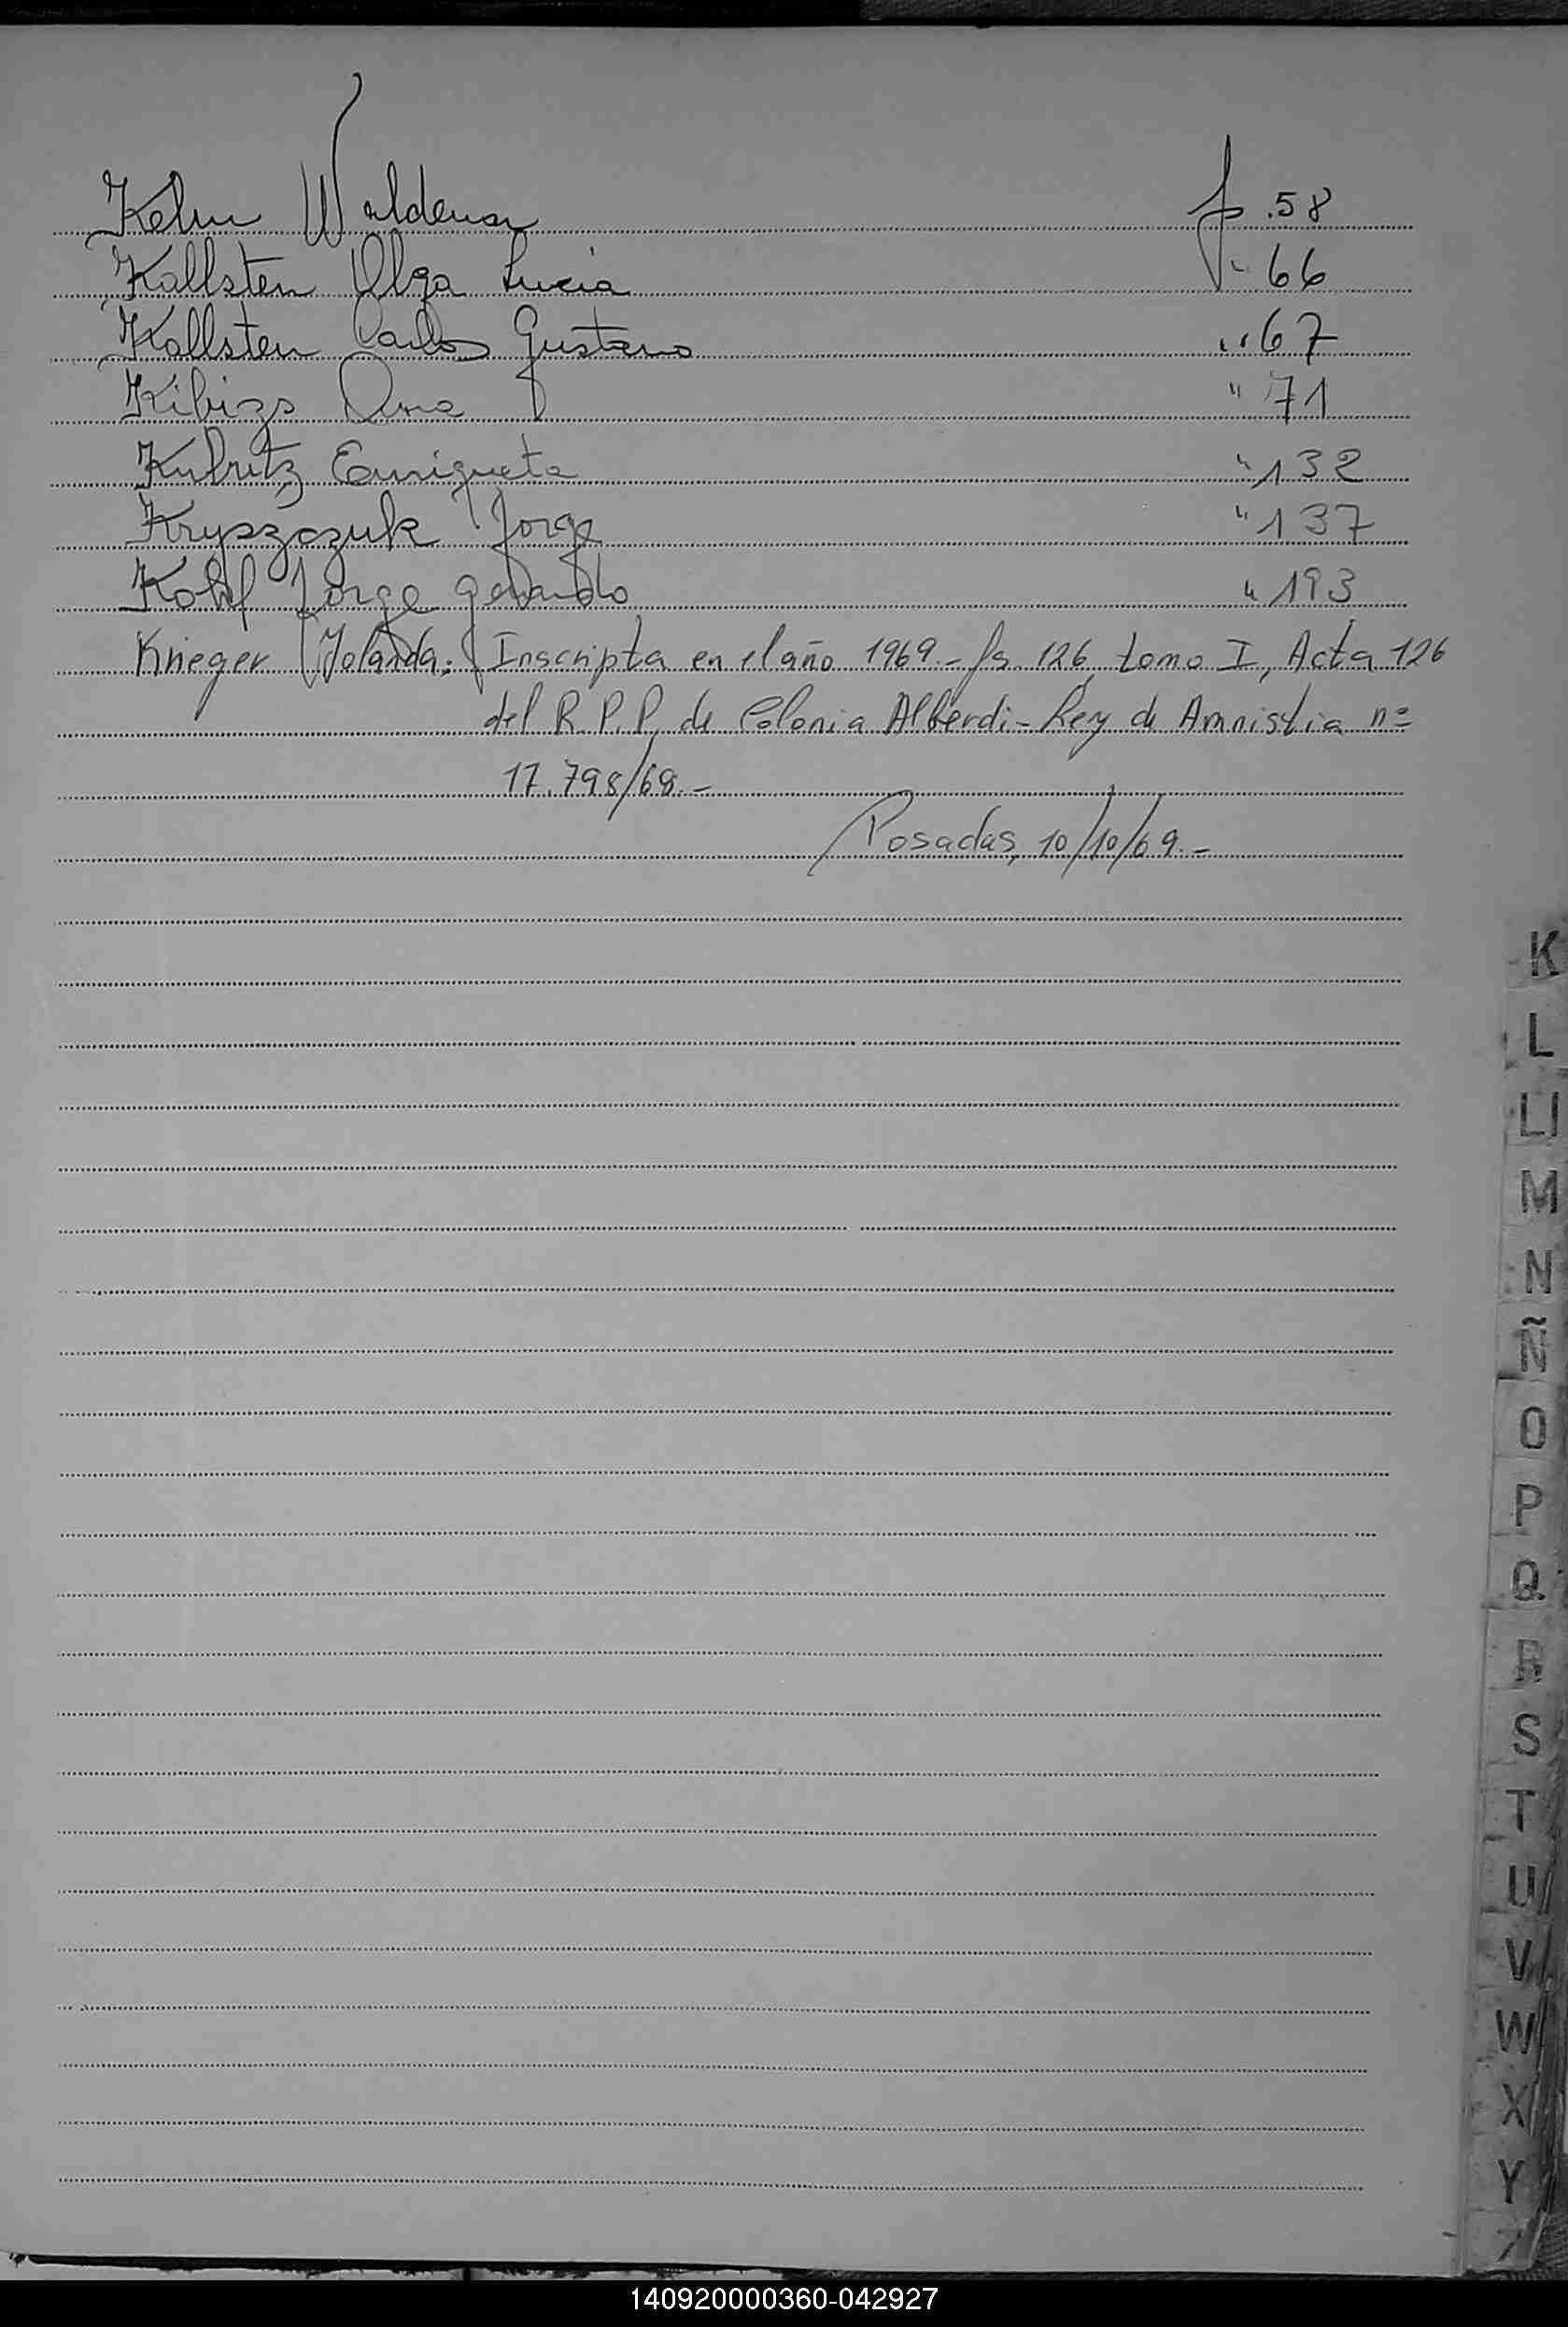 Kelm Waldemar f. 58
Kallsten Olga Lucia " 66
Kallsten Carlos Gustavo " 67
Ana " 71
Kubritz Enriqueta " 132
Kryszczuk Jorge " 137
Jorge Gerardo " 193
Krieger Yolanda: Inscripta en el año 1969.- fs. 126, tomo I, Acta 126
del R.P.P. de Colonia Alberdi- Ley de Amnistia nº
17.798/68.-
Posadas, 10/10/69.-
K
L
Ll
M
N
Ñ
O
P
Q
R
S
T
U
V
W
X
Y
Z
140920000360-042927